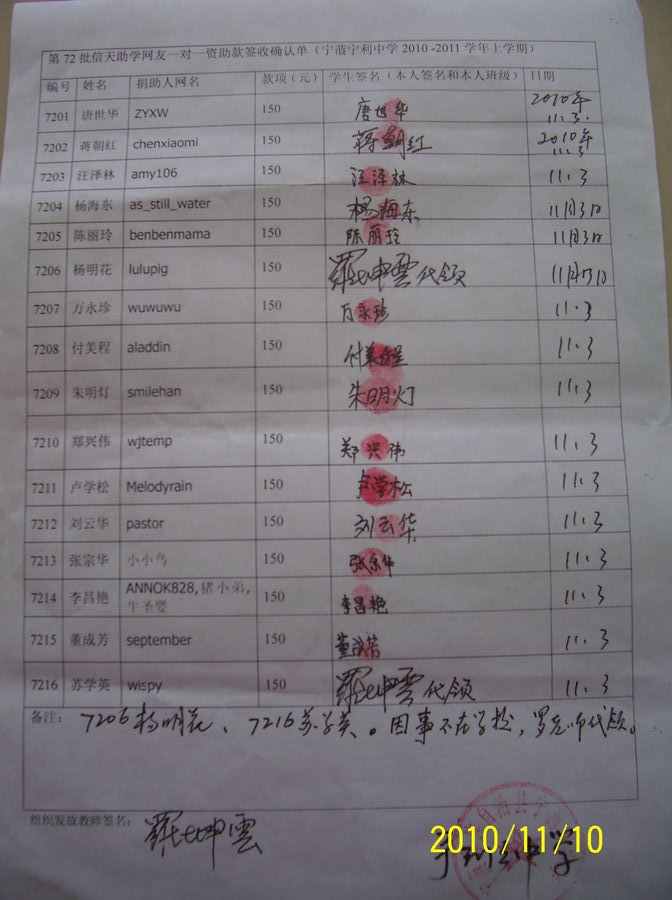 第72批信天助学网友一对一资助款签收确认单（宁蒗宁利中学2010-2011学年上学期）
编号 姓名 捐助人网名 款项（元） 学生签名（本人签名和本人班级） 日期
7201 唐世华 ZYXW 150 唐世华 2010年11.3.
7202 蒋朝红 chenxiaomi 150 蒋朝红 2010年11.3.
7203 汪泽林 amy106 150 汪泽林 11.3
7204 杨海东 as_still_water 150 杨海东 11月3日
7205 陈丽玲 benbenmama 150 陈丽玲 11月3日
7206 杨明花 lulupig 150 羅坤雲代领
7207 万永珍 wuwuwu 150 万永珍 11.3
7208 付美程 aladdin 150 付美程 11.3
7209 朱明灯 smilehan 150 朱明灯 11.3
7210 郑兴伟 wjtemp 150 郑兴伟 11.3
7211 卢学松 Melodyrain 150 卢学松 11.3
7212 刘云华 pastor 150 刘云华 11.3
7213 张宗华 小小鸟 150 张宗华 11.3
7214 李昌艳 ANNOK828,猪小弟,牛圣婴 150 李昌艳 11.3
7215 董成芳 september 150 董成芳 11.3
7216 苏学英 wispy 150 羅坤雲代领 11.3
备注： 7206杨明花、7216苏学英。因事不在学校，罗老师代领。
组织发放教师签名： 羅坤雲
2010/11/10